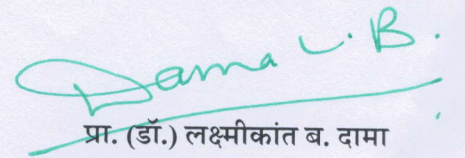 Dama L. B.
प्रा. (डॉ.) लक्ष्मीकांत ब. दामा